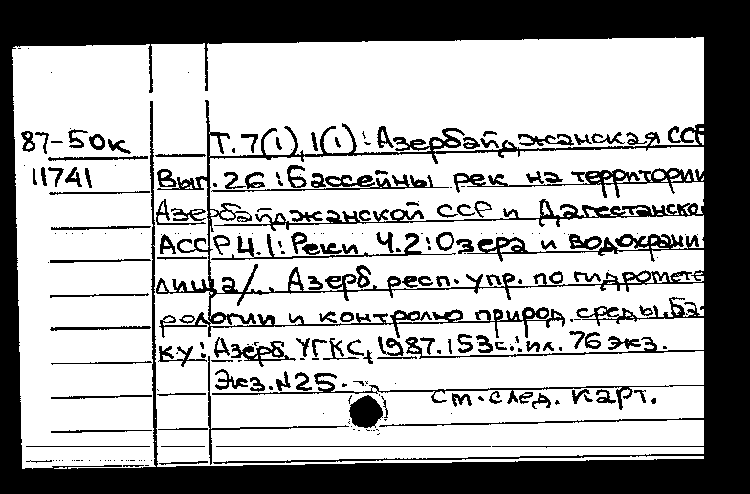 87-50к Т.7(1),1(1): Азербайджанская ССР
11741 Вып.26: Бассейны рек на территории
Азербайджанской ССР и Дагестанско
АССР, Ч.1: Реки. Ч.2: Озера и водохрани-
лища/... Азерб. респ. упр. по гидромете
рологии и контролю природ. среды. Ба-
ку: Азерб. УГКС, 1987. 153с.: ил. 76 экз.
Экз. N25.
см. след. карт.